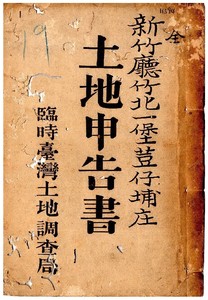 全
新竹廳竹北一堡荳仔埔庄
土地申告書
臨時臺灣土地調查局
19